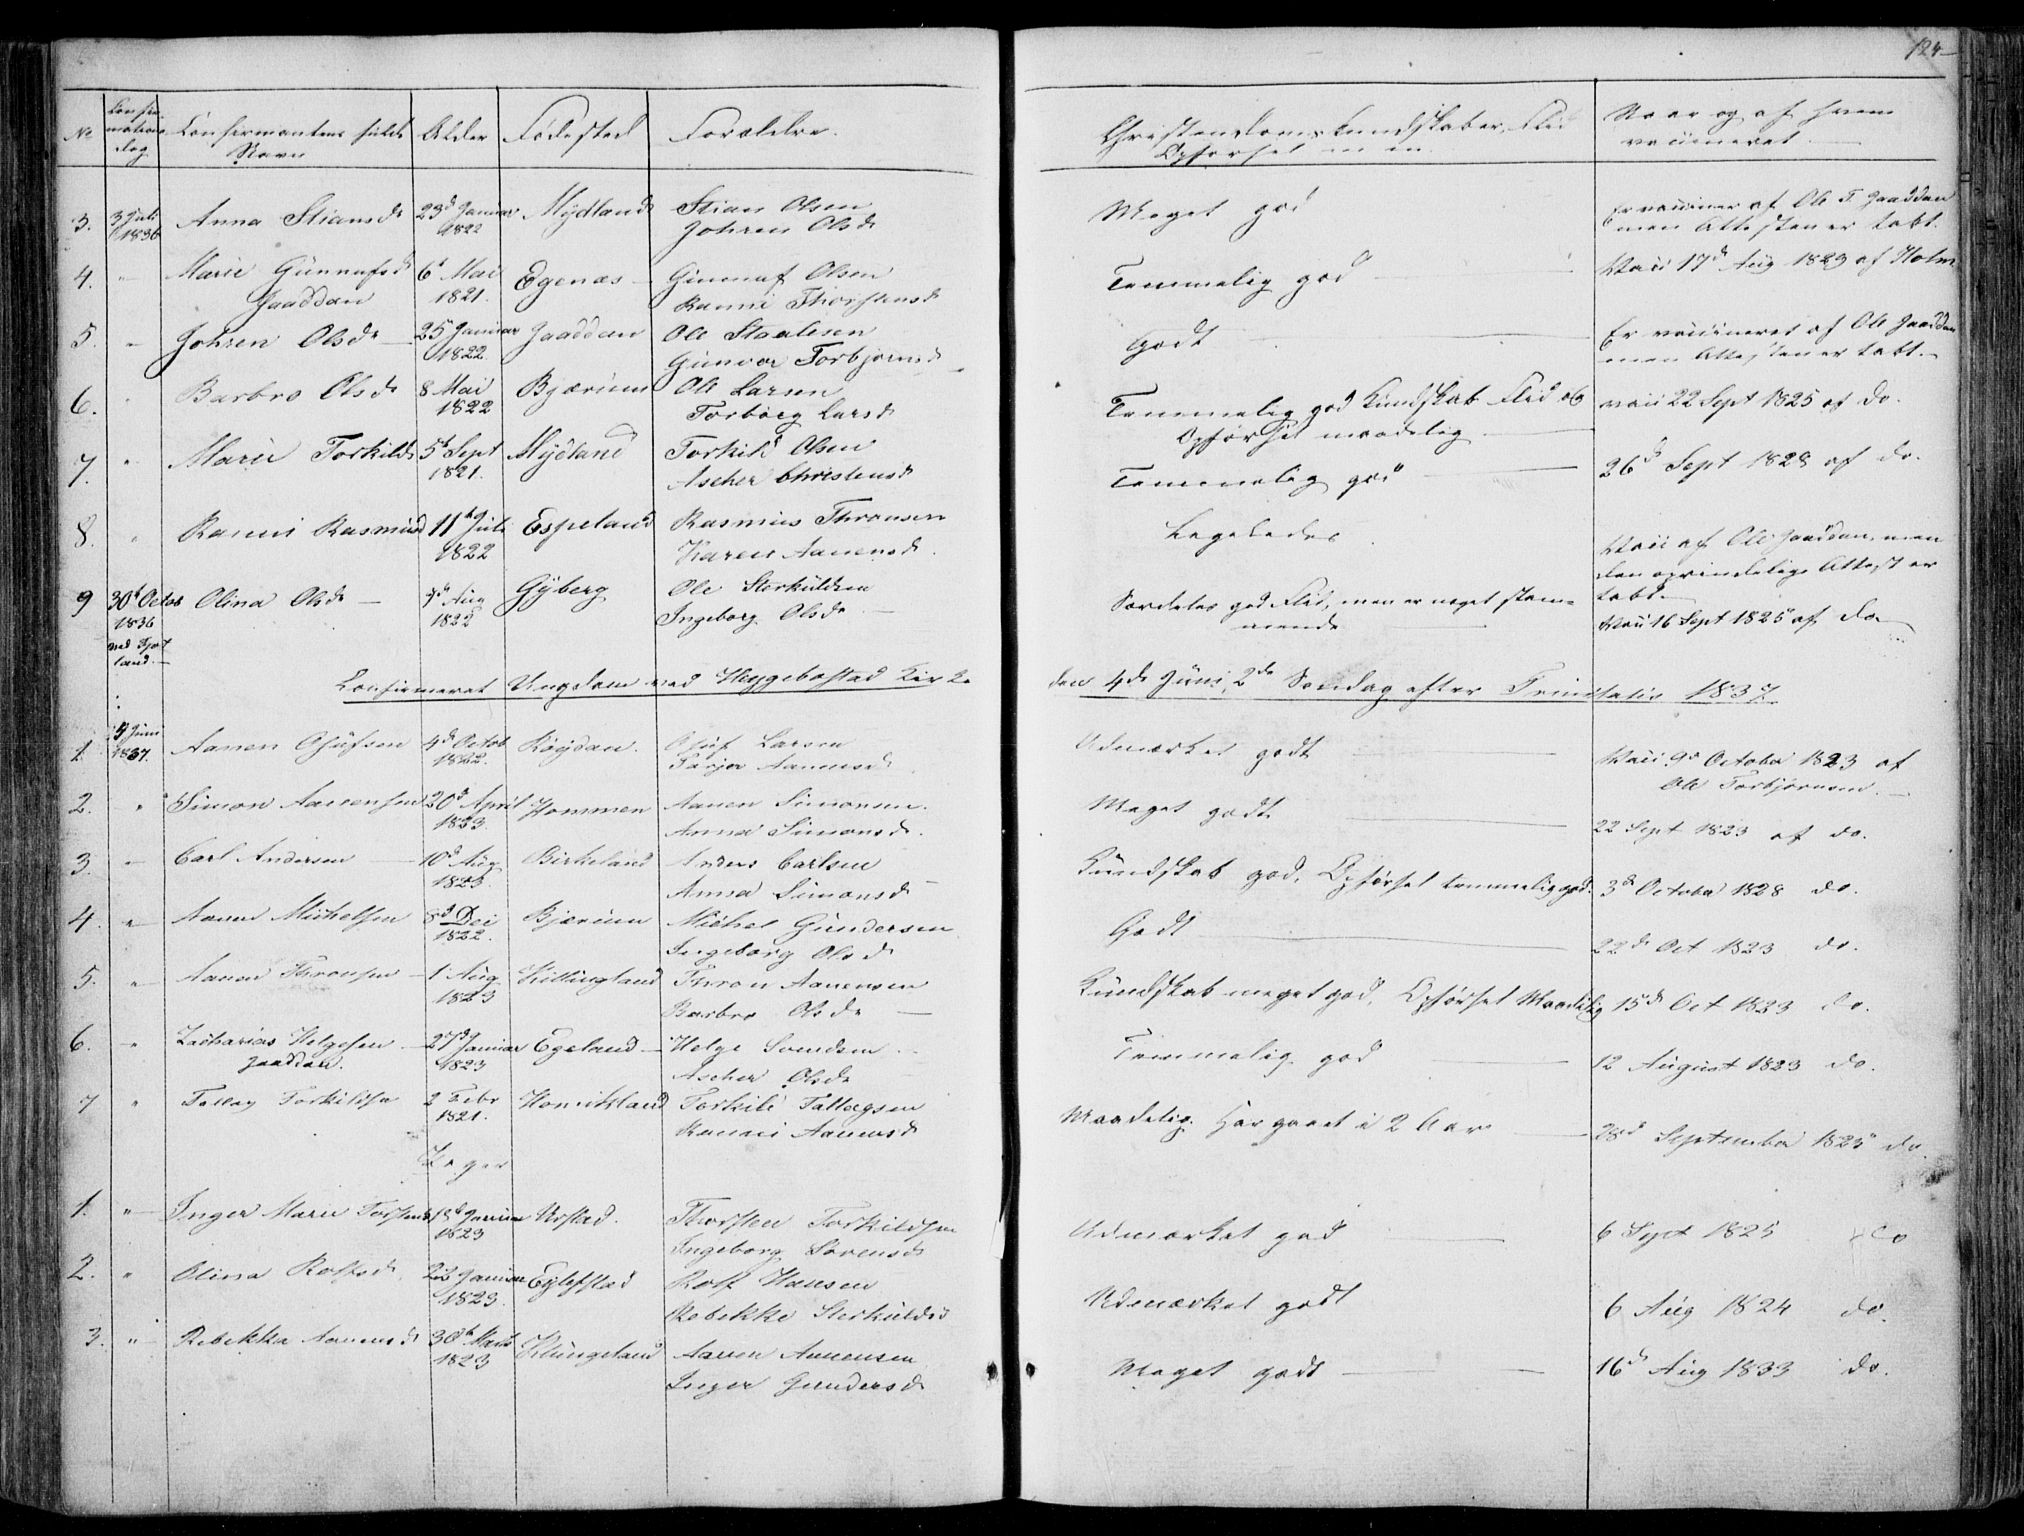 124
No Confirmations dag Confirmantens fulde Navn Alder Fødested Forældre. Christendoms Kundskaber, Flid Opførsel m m. Naar og af hvem vaccineret.
3. 3 Juli 1836 Anna Stiansdr 23d Januar 1822 Mydland Stian Olsen Johren Olsdr Meget god Er vacciner af Ole T. Gaaddan men Attesten er tabt.
4. " Marie Gunnufsdr Gaaddan 6t Mai 1821. Egenæs Gunnuf Olsen Ranni Thorstensdr Temmelig god Vacc 17d Aug 1823 af Holm
5. " Johren Olsdr 25 Januar 1822. Gaaddan Ole Staalesen Gunvor Torbjørnsd Godt Er vaccineret af Ole Gaaddan men Attesten er tabt.
6. " Barbro Olsdr 8 Mai 1822 Bjærum Ole Larsen Torborg Larsdr Temmelig god Kundskab Flid og Opførsel maadelig. vacc 22 Sept 1825 af do.
7. " Marie Torkilds 5t Sept 1821. Mydland Torkild Olsen Ascher Christensdr Temmelig god 26d Sept 1828 af do.
8. " Ranni Rasmusd 11t Juli 1822 Espeland Rasmus Thronsen Karen Aanensdr. Ligeledes Vacc af Ole Gaaddan, men den oprindelige Attest er tabt.
9 30t Octob 1836 ved Tjotland. Olina Olsdr Aug 1822 Gyberg Ole Storkuldsen Ingeborg Olsdr. Særdeles god Flid, men er noget stammende Vacc 16 Sept 1825 af do
Confirmeret Ungdom ved Heggebostad Kirke den 4de Juni, 2den Søndag efter Trinitatis 1837.
1. 4 Juni 1837. Aanen Osufsen 4d Octob 1822. Røydan. Osuf Larsen Tarjer Aanensdr Udmærket godt Vacc. 9d October 1823 af Ole Torbjørnsen.
2. " Simon Aanensen 20d April 1823. Hommen Aanen Simonsen. Anna Simonsdr. Meget godt 22 Sept 1823 af do.
3. " Carl Andersen 10d Aug 1823. Birkeland Anders Carlsen Anna Simonsdr Kundskab god, Opførsel temmelig god. 3d October 1828 do.
4. " Aanen Michelsen 8d Dec 1822. Bjærum Michel Gundersen Ingeborg Olsdr Godt 22d Oct 1823 do.
5. " Aanen Thronsen 1 Aug 1823 Killingland Thron Aanensen Barbro Olsdr Kundskab meget god, Opførsel Maadelig 15d Oct 1823 do.
6. " Zacharias Helgesen Gaaddan. 27d Januar 1823 Egeland Helge Svendsen Ascher Olsdr Temmelig god 12 August 1823 do.
7 " Tallag Torkildsen 2 Febr 1821. Homikland Torkild Tallagsen Ranni Aanensdr Maadelig. Har gaaet i 2 Aar 28d September 1825 do.
Piger
1. " Inger Marie Torstensd 18t Januar 1823 Urstad. Thorsten Torkildsen Ingeborg Sørensdr Udmærket god 6 Sept 1825 do
2. " Olina Rolfsdr. 22 Januar 1823. Eglefstad Rolf Hansen Rebekke Sterkuldsd Udmærket godt 6 Aug 1824 do.
3. " Rebekka Aanensdr 30t Marts 1823 Klungeland Aanen Aanensen Inger Gundersdr Meget godt 16d Aug 1833 do.